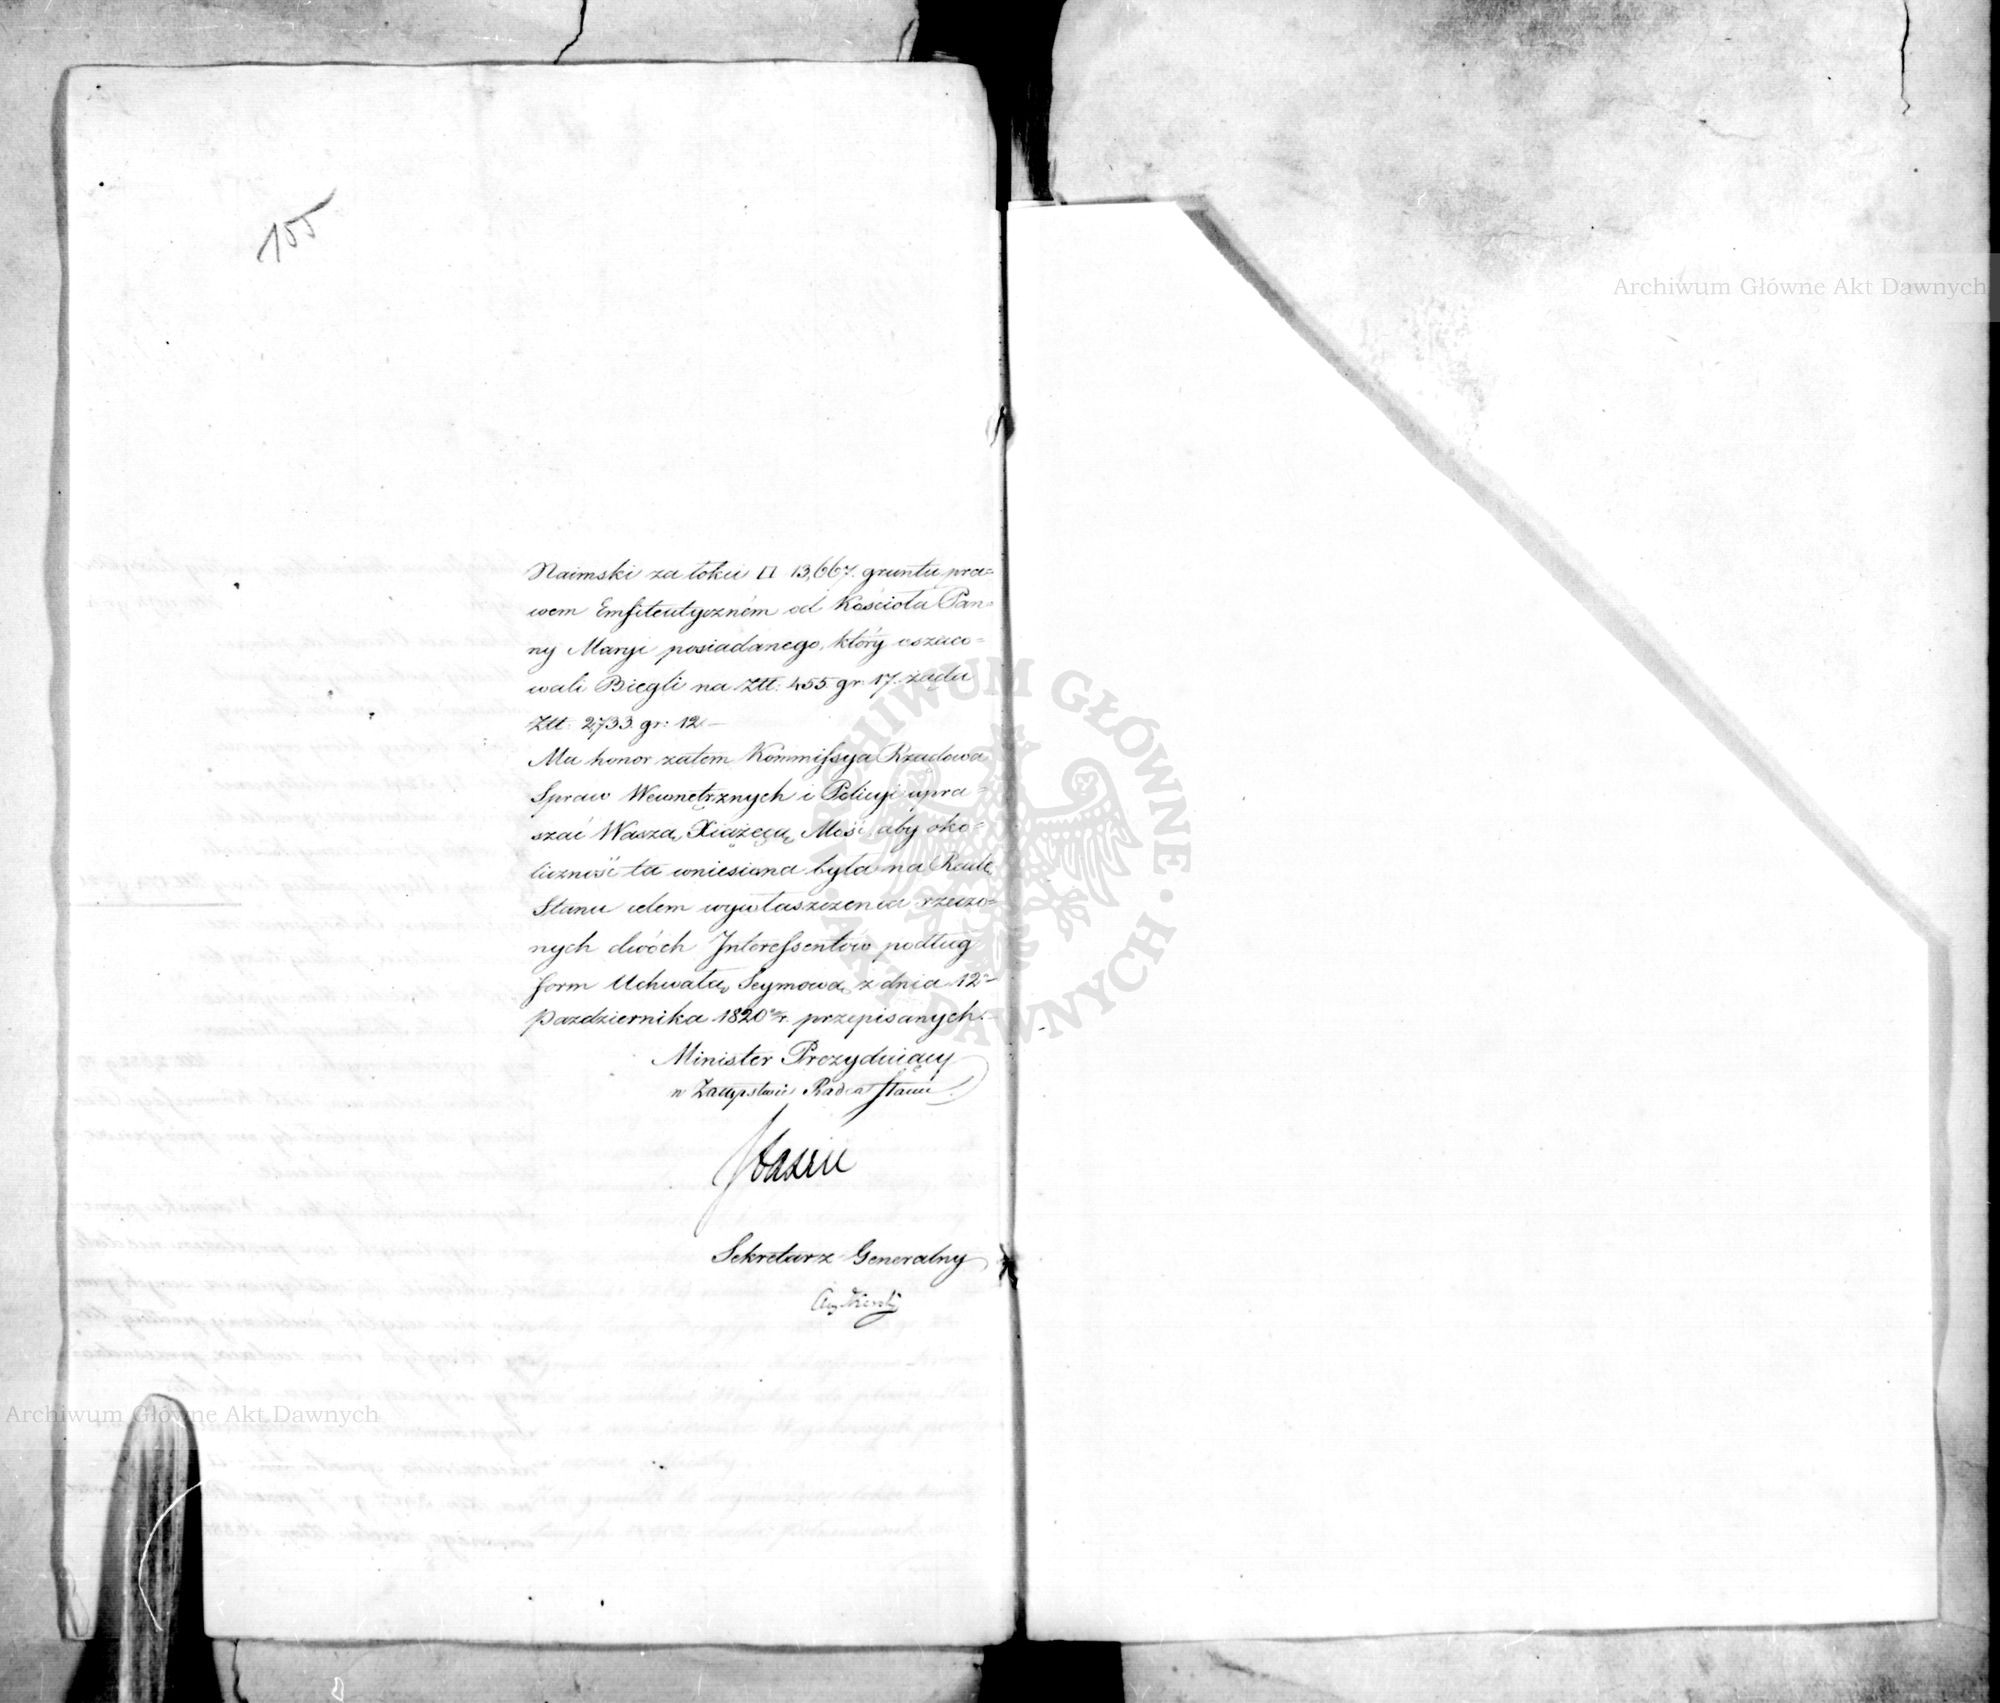 155
Naimski za łokci □ 13,667. gruntu pra=
wem Emfiteutyczném od Kościoła Pan=
ny Maryi posiadanego, który oszaco=
wali Biegli na Złt: 455 gr. 17. żąda
Złt. 2,733. gr: 12.—
Ma honor zatem Kommissya Rządowa
Spraw Wewnętrznych i Policyi upra=
szać Waszą Xiążęcą Mość, aby oko=
liczność ta wniesiona była na Radę
Stanu celem wywłaszczenia rzeczo=
nych dwóch Interessentów podług
form Uchwałą Seymową z dnia 12º
Pazdziernika 1820 r. przepisanych.—
Minister Prezyduiący
w Zastępstwie Radca Stanu
Sekretarz Generalny
Archiwum Główne Akt Dawnych
Archiwum Główne Akt Dawnych
ARCHIWUM GŁÓWNE · AKT DAWNYCH ·